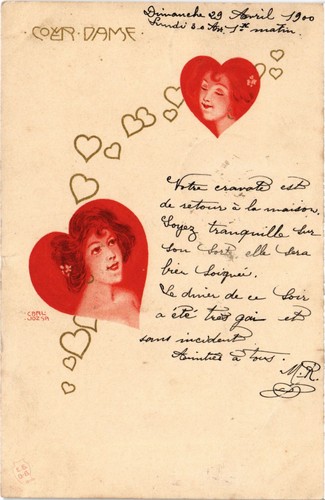 Dimanche 29 Avril 1900
Lundi 30 Avr. 1h matin.
COEUR·DAME·
Votre cravate est
de retour à la maison.
Soyez tranquille sur
son sort, elle sera
bien soignée.
Le diner de ce soir
a été très gai et
sans incident
Amitiés à tous.
M. R.
CARL
JOZSA